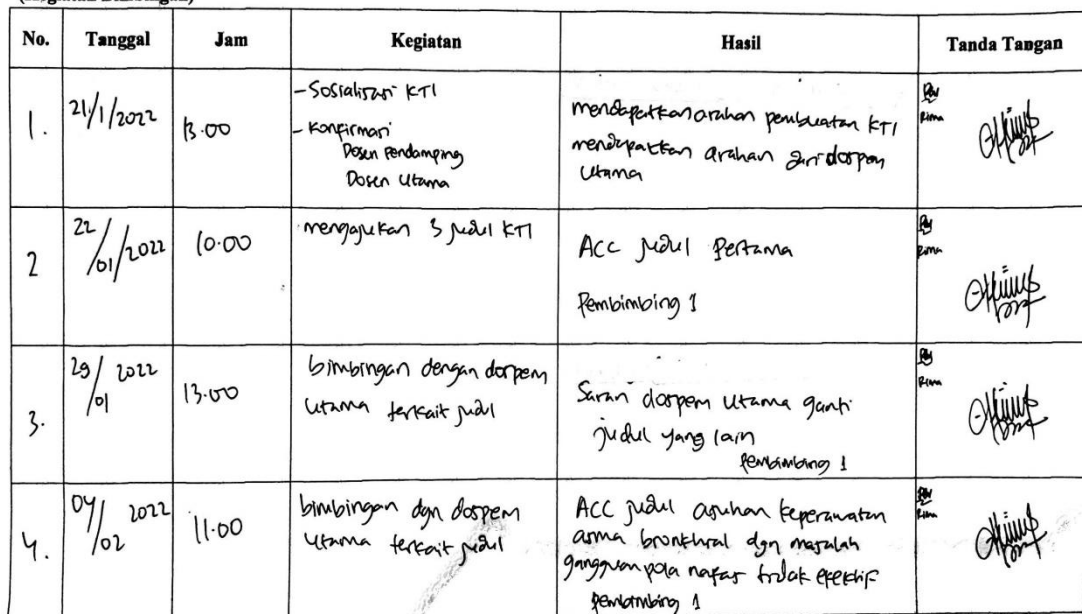 No. Tanggal Jam Kegiatan Hasil Tanda Tangan
1. 21/1/2022 13.00
- Sosialisasi KTI
- Konfirmasi
Dosen Pendamping
Dosen Utama
mendapatkan arahan pembuatan KTI
mendapatkan arahan dari dospem
Utama
Rima
2 22/01/2022 10.00
mengajukan 3 judul KTI
ACC judul Pertama
Pembimbing 1
Rima
3. 29/01 2022 13.00
bimbingan dengan dospem
Utama terkait judul
Saran dospem utama ganti
judul yang lain
Pembimbing 1
Rima
4. 04/02 2022 11.00
bimbingan dgn dospem
Utama terkait judul
ACC judul asuhan keperawatan
asma bronkhial dgn masalah
gangguan pola nafas tidak efektif
pembimbing 1
Rima